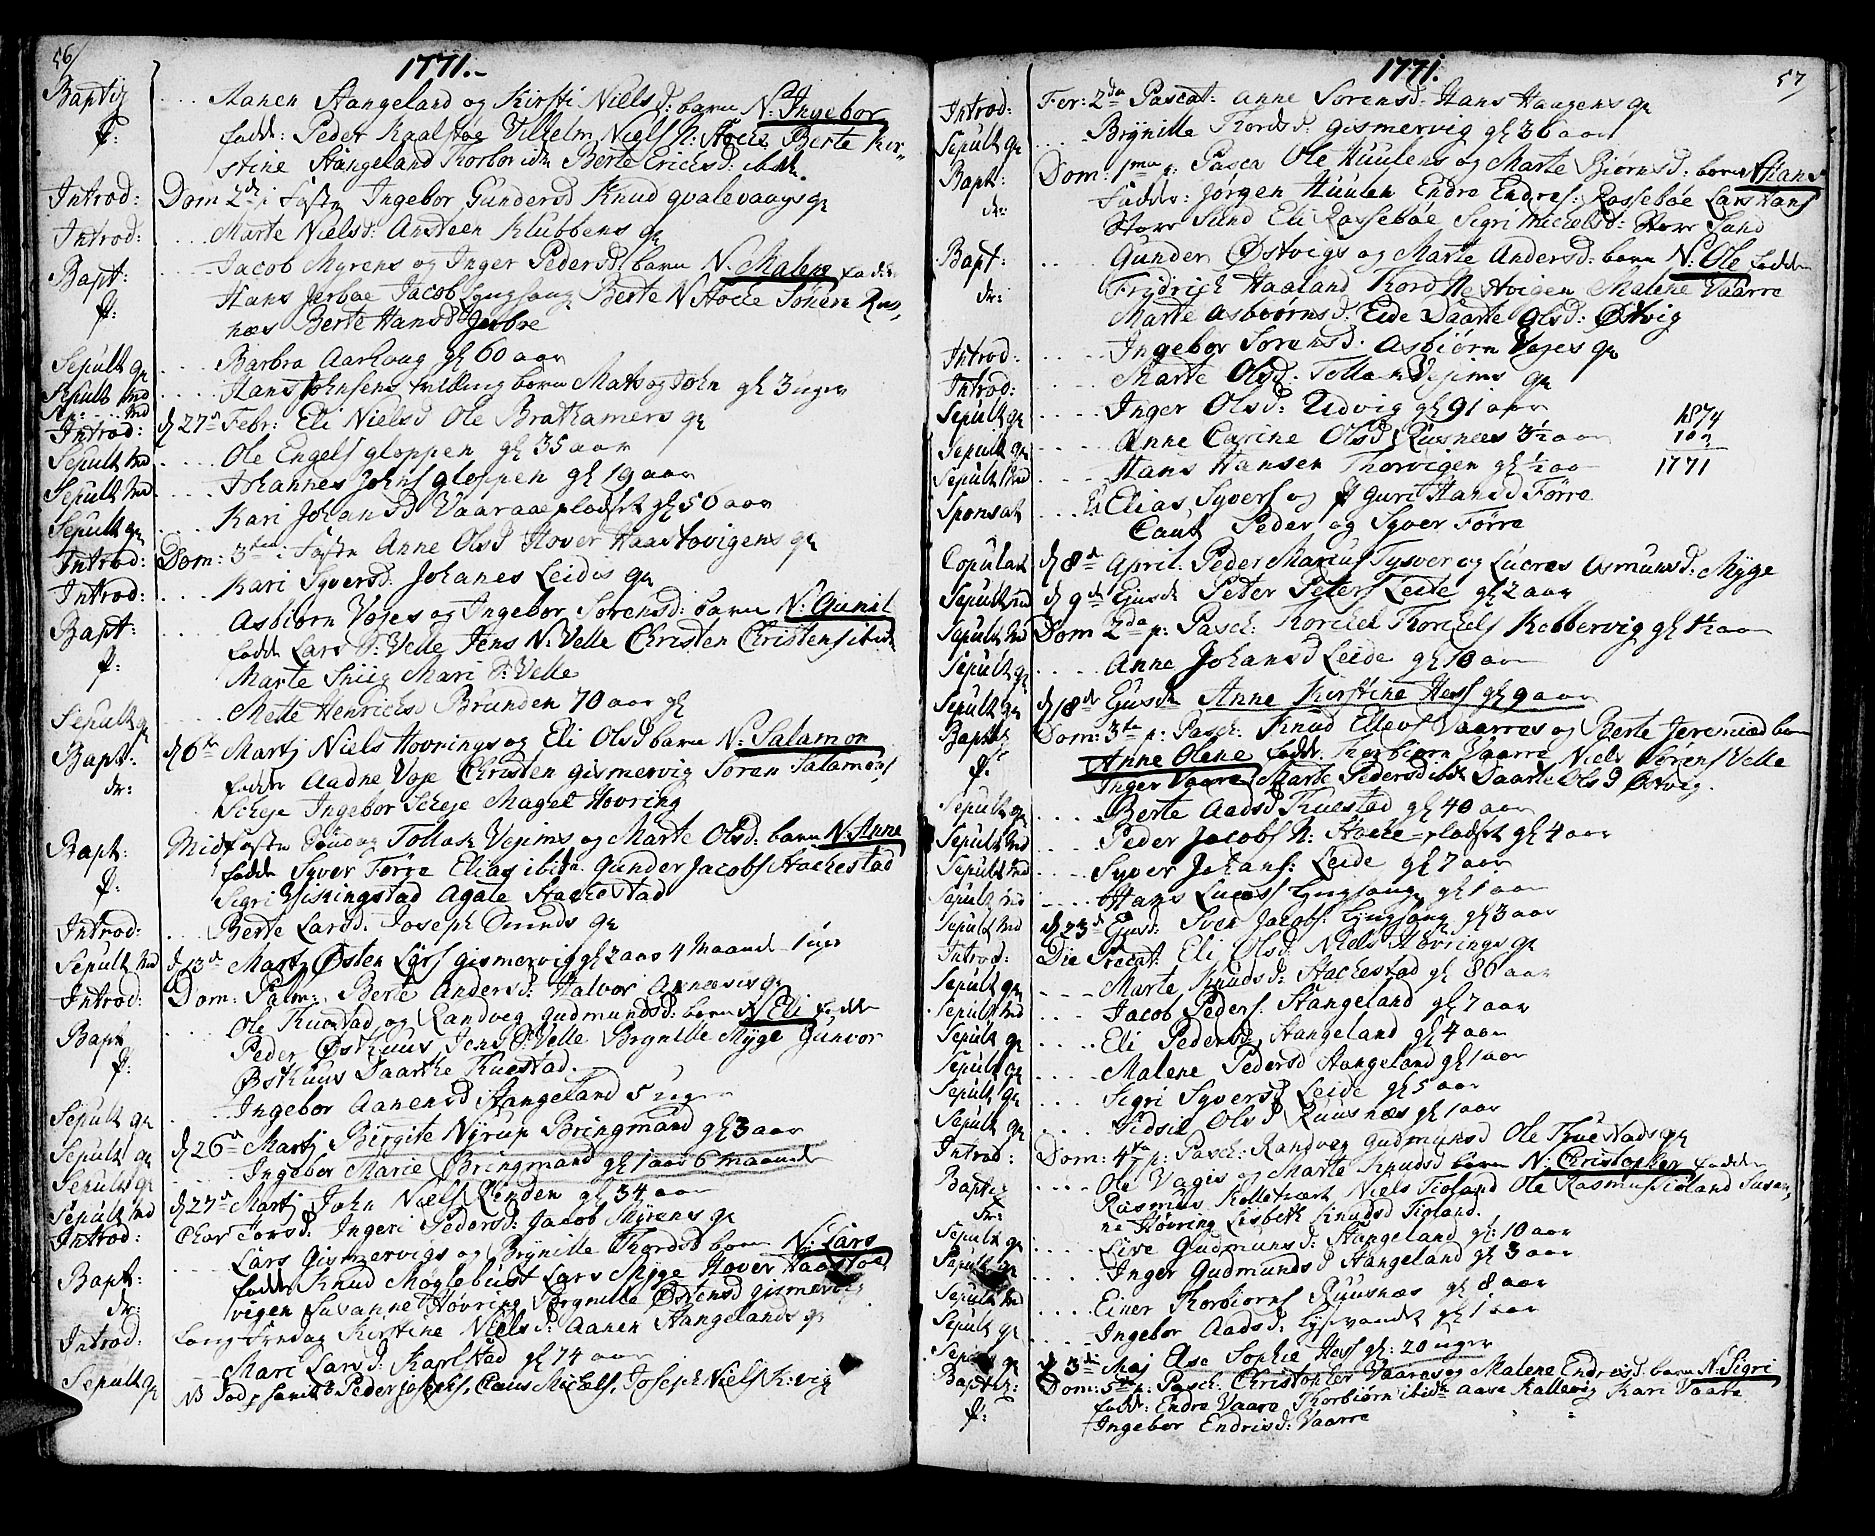 56/
1771.-
Baptiz .... Aanen Stangeland og Kirsti Nielsd: barn N: Ingebor
p: fadd: Peder Kaalstøe Vilhelm Niels Berte Kir-
stine Stangeland Torbor ibdm Berte Ericsd: ibdm.
Introd: Dom 2de i Faste Ingebor Gundersd Knud qvalevaags qe
Introd: .... Marte Nielsd: Ansteen Klubbens qe
Bapt: .... Jacob Myrens og Inger Pedersd: barn N: Malene fadd:
p: Hans Jerboe Jacob Lyngsong Berte N Stoee Rus-
næs Berte Hansd Jerbøe
Sepult qe .... Barbra Aarhaug gl 60 aar
Sepult Md .... Hans Johnsens tvilling børn Mats og John gl 3 uger
Introd: d 27n Febr: Eli Nielsd Ole Brathamers qe
Sepult Md .... Ole Engels gloppen gl 35 aar
Sepult Md .... Johannes Johns gloppen gl 19 aar
Sepult qe .... Kari Johansd Vaaraaepladset gl 50 aar
Introd: Dom: 3tia i Faste Anne Olsd Hover Haastovigens qe
Introd: Kari Syversd: Johanes Leides qe
Bapt: .... Asbiørn Voges og Ingebor Sørensd: barn N: Gunil
p: fadd: Lars S: Velle Jens N: Velle Christen Christens ibid:
Marte Sniig Mari S: Velle
Sepult qe .... Mette Henrichsd Brunden 70 aar gl
Bapt: d 6te Martj Niels Hovrings og Eli Olsd barn N: Salamon
dr: fadd: Aadne Voje Christen Gismervig Søren Salamons
Scheje Ingebor Scheje Magel Hovring
Bapt: Midfaste Søndag Tollak Vejims og Marte Olsd: barn N: Anne
p: fadd: Syver Førre Elias ibidm Gunder Jacobs Stachestad
Sigri Viskingstad Agate Stachestad
Introd: .... Berte Larsd: Joseph Sunds qe
Sepult Md d 13de Martj Østen Lars Gismervig gl 2 aar 4 Maaned 1 uge
Introd: Dom: Palm: Berte Andersd: Halvor Apnæsis qe
Bapt .... Ole Tuestad og Randveg Gudmundsd: barn N: Eli fadd:
p: Peder Østhuus Jens S: Velle Brynille Myge Gunvor
Østhuus Daarthe Tuestad.
Sepult qe . Ingebor Aanensd Stangeland 5 uger
Sepult qe d 26de Martj Birgite Nyrup Bringmand gl 3 aar
Sepult qe Ingebor Marie Bringmand gl 1 aar 6 Maaned
Sepult Md d 27de Martj John Niels Linden gl 34 aar
Introd: Skær Torsd: Ingeri Pedersd: Jacob Myrens qe
Bapt: .... Lars Gismervigs og Brynille Thordsd barn N: Lars
dr: fadd: Knud Møglebust Lars Myge Hover Haasto-
vigen Susanne Høvring Brynille Østensd Gismervig
Introd: Lang Fredag Kirstine Nielsd: Aanen Stangelands qe
Sepult qe .. Mari Larsd: Karlstad gl 74 aar
NB Peder Josephs, Claus Michels, Joseph Niels K:vig

57/
1771.
Introd: Fer: 2da Pascat: Anne Sørensd: Hans Haagens qe
Sepult qe .... Brynille Thordsd: Gismervig gl 36 aar
Bapt: Dom: 1ma p: Pasca Ole Huulens og Marte Biørnsd: barn N: Hans
dr: Fadder: Jørgen Huulen Endre Endres: Rossebøe Lars Hans
Store Sund Eli Rossebøe Sigri Michelsd: Store Sund
Bapt: .... Gunder Østvigs og Marte Andersd: barn N: Ole fadder
dr: Frydrich Haaland Tord Malene Vaarre
Marte Asbiørnsd: Eide Daarte Olsd: Østvig
Introd: .... Ingebor Sørensd: Asbiørn Vojes qe
Introd: .... Marte Olsd: Tollak Vejims qe
Sepult qe .... Inger Olsd: Udvig gl 91 aar
Sepult qe .... Anne Carine Olsd Ruusnæs 3½ aar
Sepult Md .... Hans Hansen Thorvigen gl ½ aar
1874
103
1771
Sponsat .. Elias Syvers og P Guri Hansd Førre
Caut Peder og Syver Førre
Copulat d 8de April: Peder Marius Tysver og Lucres Asmunsd: Myge
Sepult Md d 9de Ejusd: Peter Peters Leide gl 2 aar
Sepult Md Dom 2da p: Pasch: Torchel Torchels Kobbervig gl 1½ aar
Sepult qe .... Anne Johansd Leide gl 10 aar
Sepult qe d 18de Ejusd: Anne Kirstine Hess gl 9 aar
Bapt: Dom: 3tia p: Pasch: Knud Ellevs Vaarres og Berte Jeremiæd ba
p: Anne Olene fadd: Torbiørn Vaarre Niels Sørens Velle
Inger Vaarre Marte Pedersd ibdm Daarte Olsd Ørvig.
Sepult qe .... Berte Aadsd Tuestad gl 40 aar
Sepult Md .... Peder Jacobs N: Stoeepladset gl 4 aar
Sepult Md .... Syver Johans: Leide gl 7 aar
Sepult Md .... Hans Lucas Lyngsong gl 1 aar
Sepult Md d 23de Ejusd: Sven Jacobs: Lyngsong gl 3 aar
Introd: Die Precat: Eli Olsd: Niels Hovrings qe
Sepult qe .... Marte Knudsd: Stachestad gl 86 aar
Sepult Md .... Jacob Peders: Stangeland gl 7 aar
Sepult qe .... Eli Pedersd: Stangeland gl 4 aar
Sepult qe .... Malene Pedersd Stangeland gl 1 aar
Sepult qe .... Sigri Syversd Leide gl 5 aar
Sepult qe .... Sidsil Olsd Ruusnæs gl 1 aar
Introd: Dom: 4ta p: Pasch: Randveg Gudmunsd Ole Thuestads qe
Baptiz .... Ole Vagis og Marte Knudsd barn N: Christopher fadder
dr: Rasmus Kolletveit Niels Fioland Ole Rasmus Fioland Susan-
ne Høvring Lisbeth Knudsd Fioland.
Sepult qe .... Live Gudmunsd: Stangeland gl: 10 aar
Sepult qe .... Inger Gudmunds d Stangeland gl 3 aar
Sepult Md .... Einer Torbiørns Ruusnæs gl 8 aar
Sepult qe .... Ingebor Aadsd: Lysevandet gl 1 aar
Sepult qe d 3di Maj Else Sophie Hess gl: 20 uger
Baptiz: Dom: 5ta p: Pasch: Christopher Vaares og Malene Endresd: barn N: Sigri
p: fadd: Endre Vaare Torbiørn ibidm Aase Kallevig Kari Vaare
Ingebor Endrisd: Vaarre